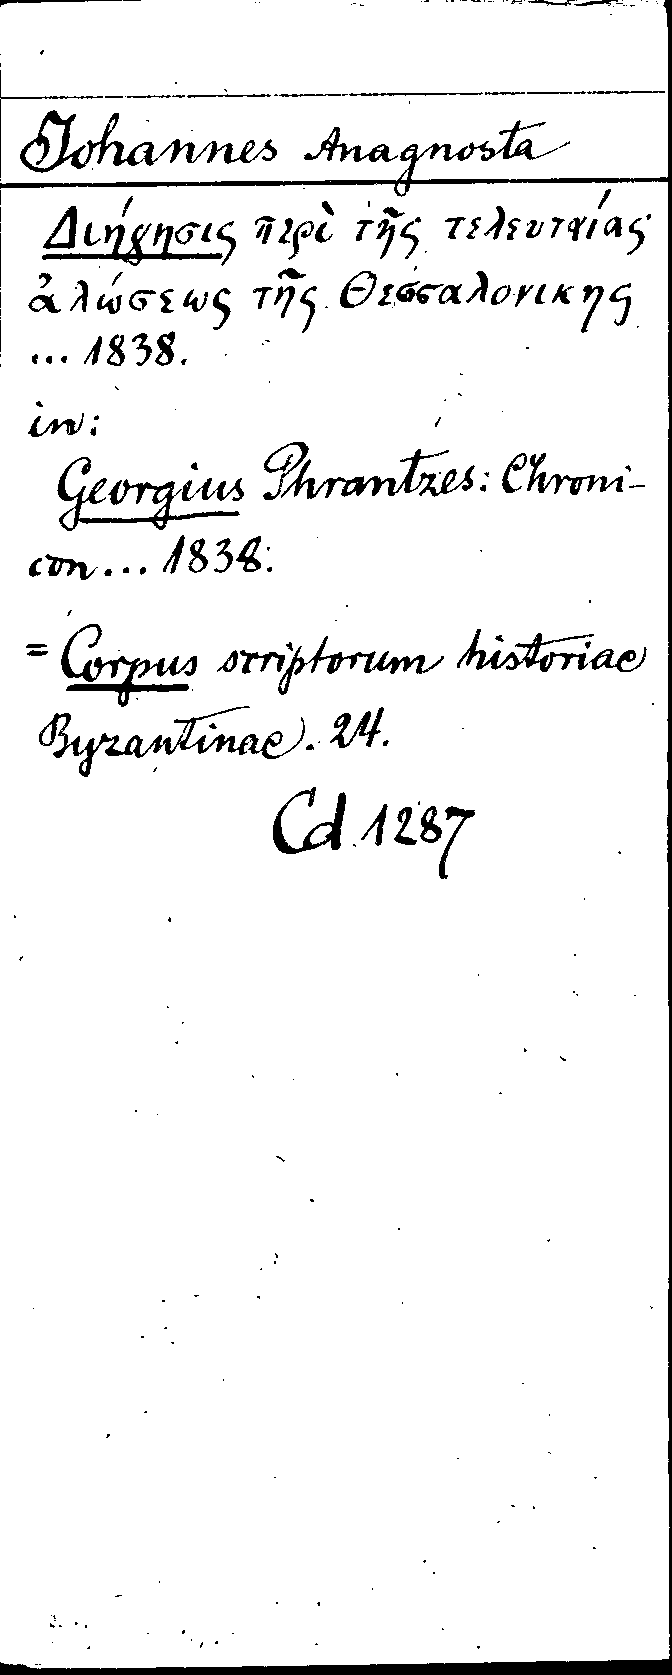 Johannes Anagnosta
Διήγησις περὶ τῆς τελευταίας
ἁλώσεως τῆς Θεσσαλονικης
... 1838.
in:
Georgius Phrantzes: Chroni-
con ... 1838.
= Corpus scriptorum historiae
Byzantinae. 24.
Cd 1287